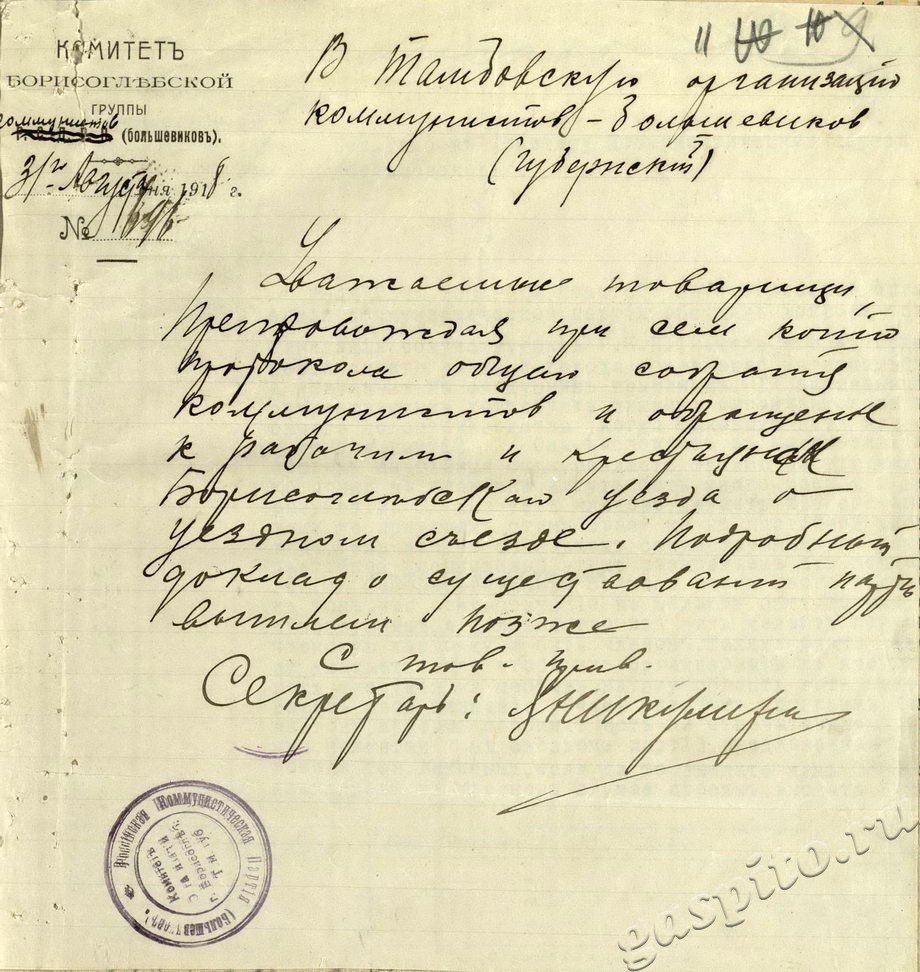 КОМИТЕТЪ
БОРИСОГЛѢБСКОЙ
ГРУППЫ
коммунистов
(большевиковъ).
31го Августа дня 1918 г.
№
В Тамбовскую организацію
коммунистов-большевиков
(губернский)
Уважаемые товарищи,
Препровождая при сем копію
протокола общаго собранія
коммунистов и обращеніе
к рабочим и крестьянам
Борисоглебскаго уезда о
уездном съезде. Подробный
доклад о существованіи
вышлем позже
С тов. прив.
Секретарь:
Россійская Коммунистическая Партія (Большевиковъ).
Комитетъ
Организаціи
г. Борисоглѣб.
Т. губ.
gaspito.ru